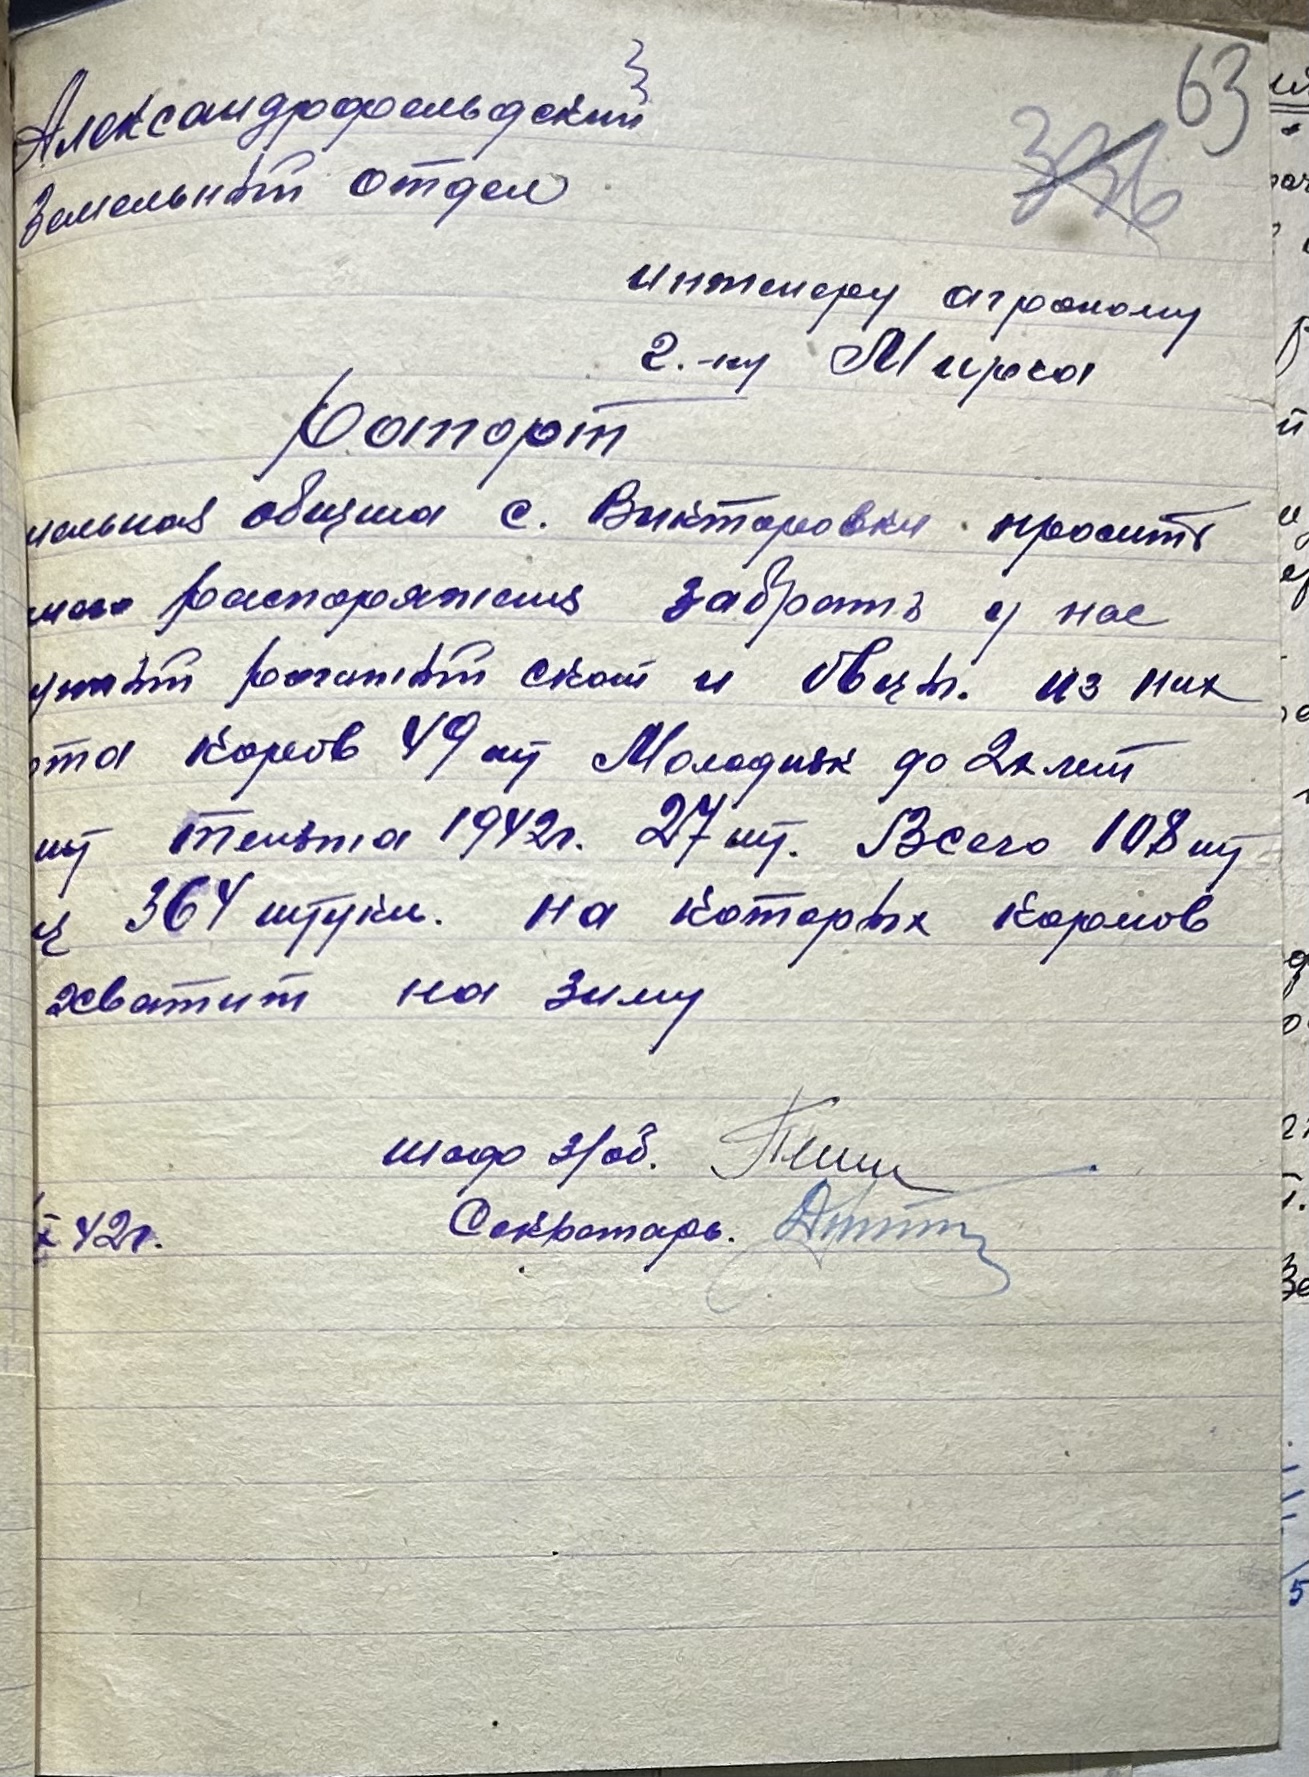 63
Александрофельдский
Земельный отдел
инженеру агроному
г.-ну Мирча
Рапорт
мельная община с. Викторовки просить
распоряжения забрать у нас
рогатый скот и овцы. из них
коров 49 шт Молодняк до 2х лет
шт телята 1942г. 27 шт. Всего 108 шт
ц 364 штуки. на которых кормов
хватит на зиму
з/об.
42г. Секретарь.